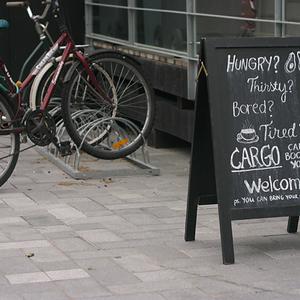 HUNGRY?
Thirsty?
Bored?
Tired?
CARGO
Welcom
ps. YOU CAN BRING YOUR